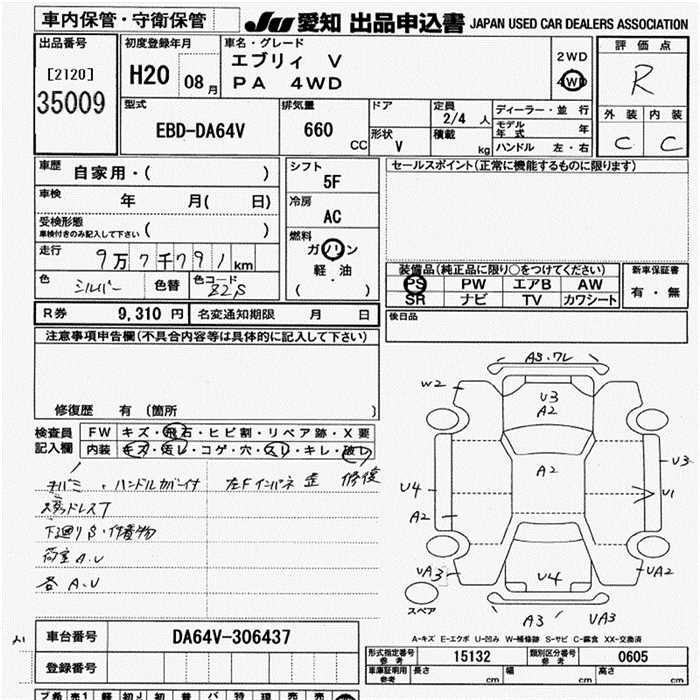 車内保管・守衛保管
JU 愛知 出品申込書 JAPAN USED CAR DEALERS ASSOCIATION
出品番号
[2120]
35009
初度登録年月
H20 08月
車名・グレード
エブリィ V
PA 4WD
2WD
4WD
評価点
R
外装 内装
C C
型式
EBD-DA64V
排気量
660 CC
ドア
形状
V
定員
2/4 人
積載
kg
ディーラー・並行
モデル年式 年
ハンドル 左・右
車歴
自家用・( )
車検
年 月( 日)
受検形態
車検付きのみ記入して下さい ( )
走行
9万7千791km
色
シルバー
色替
色コード
Z2S
シフト
5F
冷房
AC
燃料
ガソリン
軽・油
( )
セールスポイント(正常に機能するものに限ります)
装備品(純正品に限り○をつけてください)
PS PW エアB AW
SR ナビ TV カワシート
新車保証書
有・無
後日品
R券 9,310円 名変通知期限 月 日
注意事項申告欄(不具合内容等は具体的に記入して下さい)
修復歴 有〔箇所 〕
検査員記入欄
FW キズ・飛石・ヒビ割・リペア跡・X要
内装 キズ・汚レ・コゲ・穴・スレ・キレ・破レ
ハンドルカバーイナ 左Fインパネ 歪 修復
スタッドレスT
下廻りS・付着物
荷室A.U
各A.U
A3.ワレ
W2
U3
A2
A2
U3
U4
A2
U1
UA3
U4
UA2
スペア
A3
UA3
A-キズ E-エクボ U-凹み W-補修跡 S-サビ C-腐食 XX-交換済
車台番号 DA64V-306437
登録番号
形式指定番号 参考 15132
類別区分番号 参考 0605
車庫証明用 参考 長さ cm 幅 cm 高さ cm